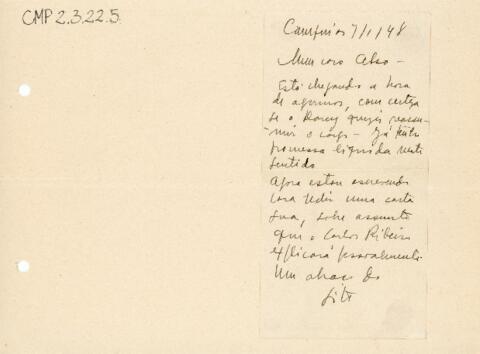 CMP 2.3.22.5.
Campinas 7/1/48
Meu caro Also -
Está chegando a hora
de agirmos, com certeza
se o Darcy quizer reassu-
mir o cargo - Já tenho
promessa líquida neste
sentido
Agora estou escrevendo
para pedir uma carta
sua, sobre assunto
que o Carlos Ribeiro
explicará pessoalmente.
Um abraço do